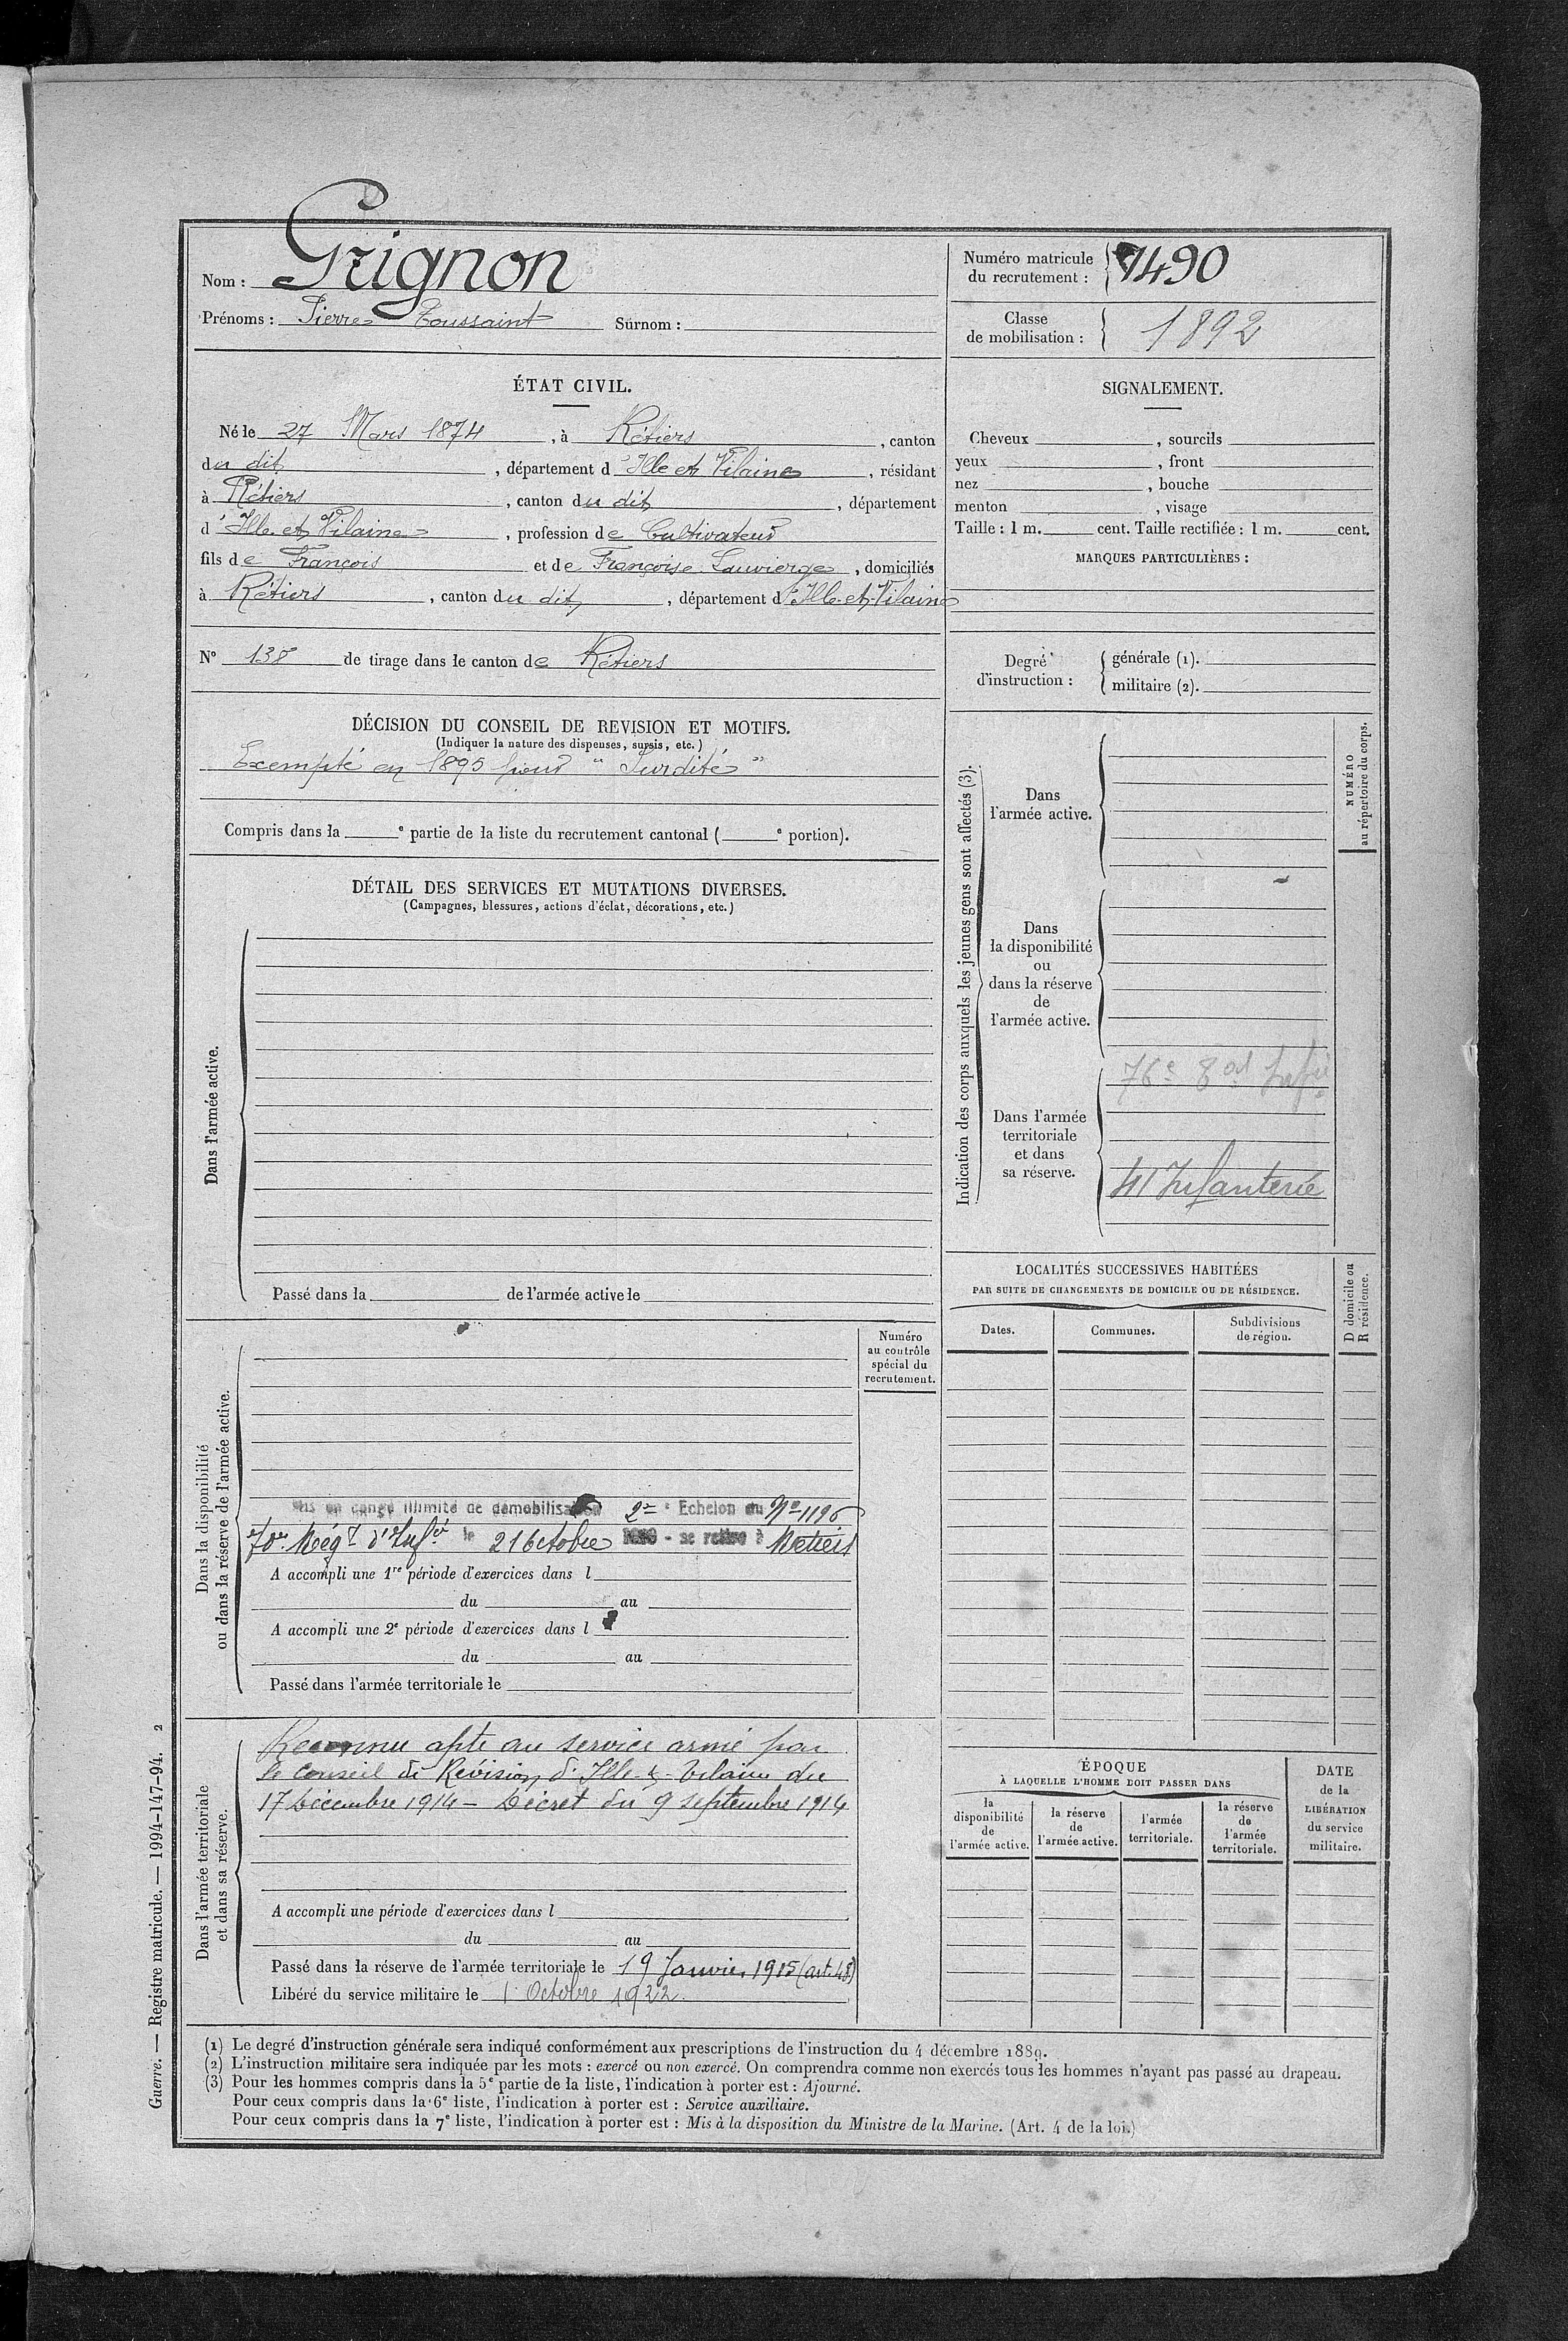 Nom : Grignon
Prénoms : Pierre Toussaint Surnom :
Numéro matricule
du recrutement : 1490
Classe
de mobilisation : 1892
ÉTAT CIVIL.
Né le 27 Mars 1874, à Rétiers, canton
du dit, département d'Ille et Vilaine, résidant
à Rétiers, canton du dit, département
d'Ille et Vilaine, profession de Cultivateur
fils de François et de Françoise Louvierge, domiciliés
à Rétiers, canton du dit, département d'Ille-et-Vilaine
N° 138 de tirage dans le canton de Rétiers
SIGNALEMENT.
Cheveux , sourcils
yeux , front
nez , bouche
menton , visage
Taille : 1 m. cent. Taille rectifiée : 1 m. cent.
MARQUES PARTICULIÈRES :
Degré
d'instruction :
générale (1).
militaire (2).
DÉCISION DU CONSEIL DE REVISION ET MOTIFS.
(Indiquer la nature des dispenses, sursis, etc.)
Exempté en 1895 pour "Surdité"
Compris dans la e partie de la liste du recrutement cantonal ( e portion).
DÉTAIL DES SERVICES ET MUTATIONS DIVERSES.
(Campagnes, blessures, actions d'éclat, décorations, etc.)
Dans l'armée active.
Passé dans la de l'armée active le
Indication des corps auxquels les jeunes gens sont affectés (3).
NUMÉRO
au répertoire du corps.
Dans
l'armée active.
Dans
la disponibilité
ou
dans la réserve
de
l'armée active.
Dans l'armée
territoriale
et dans
sa réserve.
76e
41 Infanterie
LOCALITÉS SUCCESSIVES HABITÉES
PAR SUITE DE CHANGEMENTS DE DOMICILE OU DE RÉSIDENCE.
Dates.
Communes.
Subdivisions
de région.
D domicile ou
R résidence.
Dans la disponibilité
ou dans la réserve de l'armée active.
Numéro
au contrôle
spécial du
recrutement.
Mis en congé illimité de démobilisation 2e Echelon du No 1196
70e Régt d'Infie le 21 Octobre - se retire à Retiers
A accompli une 1re période d'exercices dans l
du au
A accompli une 2e période d'exercices dans l
du au
Passé dans l'armée territoriale le
Dans l'armée territoriale
et dans sa réserve.
Reconnu apte au service armé par
le Conseil de Révision d'Ille-&-Vilaine du
17 Décembre 1914 - Décret du 9 septembre 1914
A accompli une période d'exercices dans l
du au
Passé dans la réserve de l'armée territoriale le 19 Janvier 1915 (art. 48)
Libéré du service militaire le 1 Octobre 1922.
ÉPOQUE
À LAQUELLE L'HOMME DOIT PASSER DANS
la
disponibilité
de
l'armée active.
la réserve
de
l'armée active.
l'armée
territoriale.
la réserve
de
l'armée
territoriale.
DATE
de la
LIBÉRATION
du service
militaire.
(1) Le degré d'instruction générale sera indiqué conformément aux prescriptions de l'instruction du 4 décembre 1889.
(2) L'instruction militaire sera indiquée par les mots : exercé ou non exercé. On comprendra comme non exercés tous les hommes n'ayant pas passé au drapeau.
(3) Pour les hommes compris dans la 5e partie de la liste, l'indication à porter est : Ajourné.
Pour ceux compris dans la 6e liste, l'indication à porter est : Service auxiliaire.
Pour ceux compris dans la 7e liste, l'indication à porter est : Mis à la disposition du Ministre de la Marine. (Art. 4 de la loi.)
Guerre. — Registre matricule. — 1994-147-94. 2